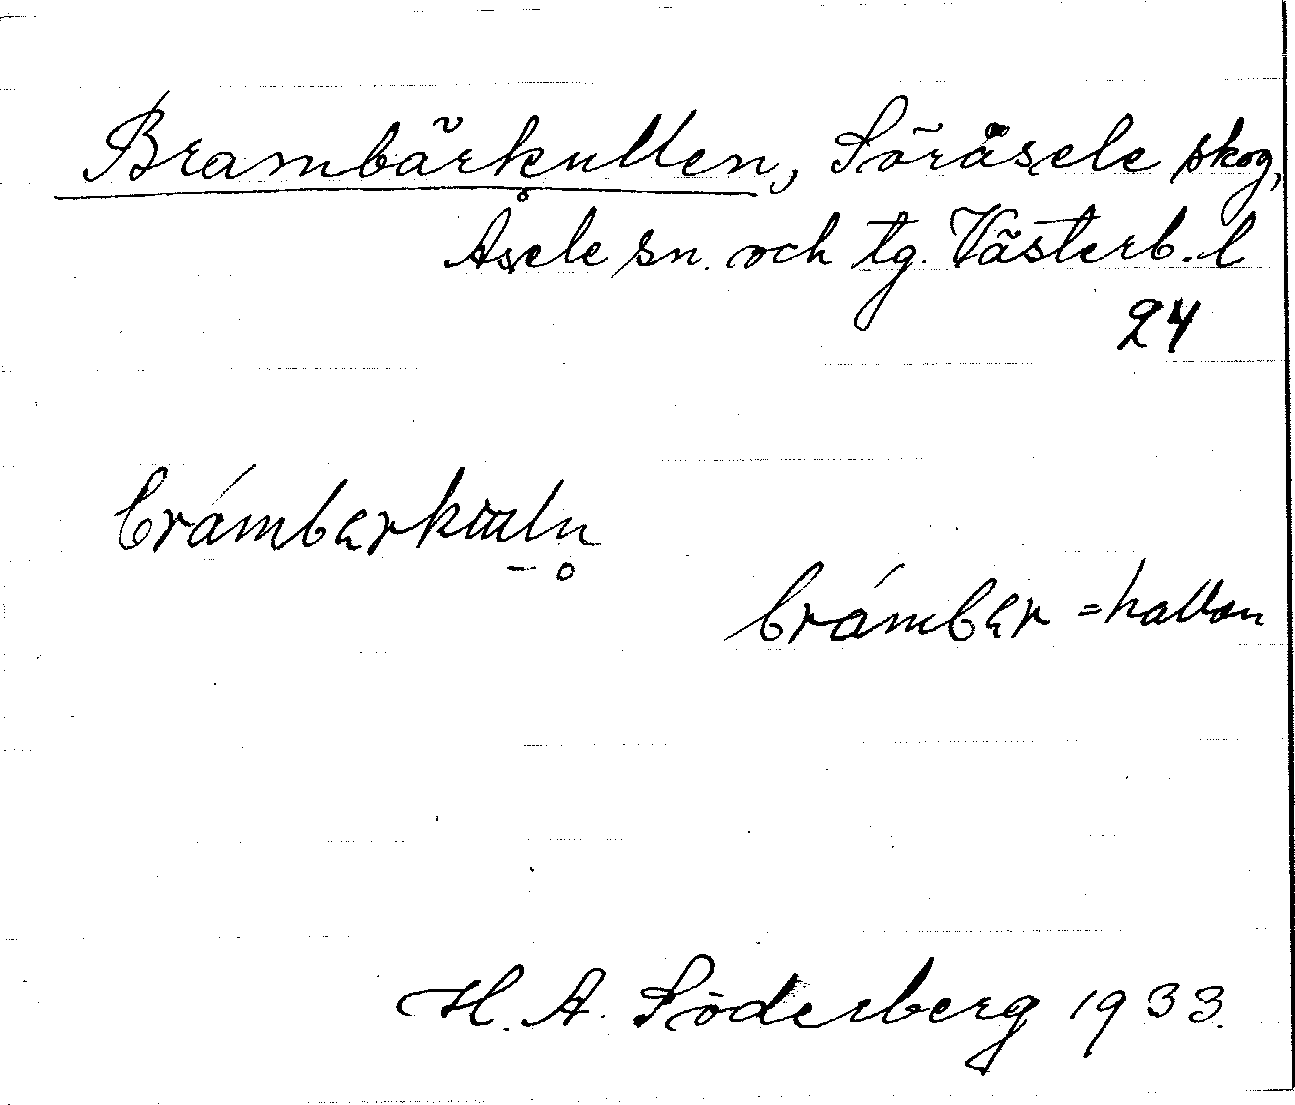 Brambärkullen, Söråsele skog,
Åsele sn. och tg. Västerb. l
24
brámbęrkɯln̥
brámbęr = hallon
H. A. Söderberg 1933.